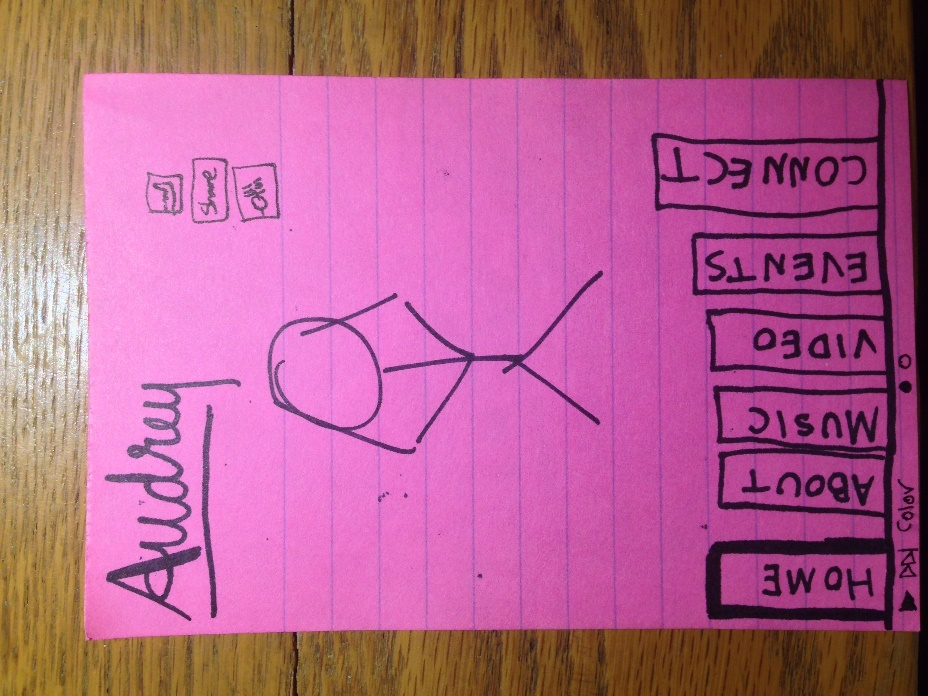 Audrey
Share
HOME
ABOUT
MUSIC
VIDEO
EVENTS
CONNECT
Color